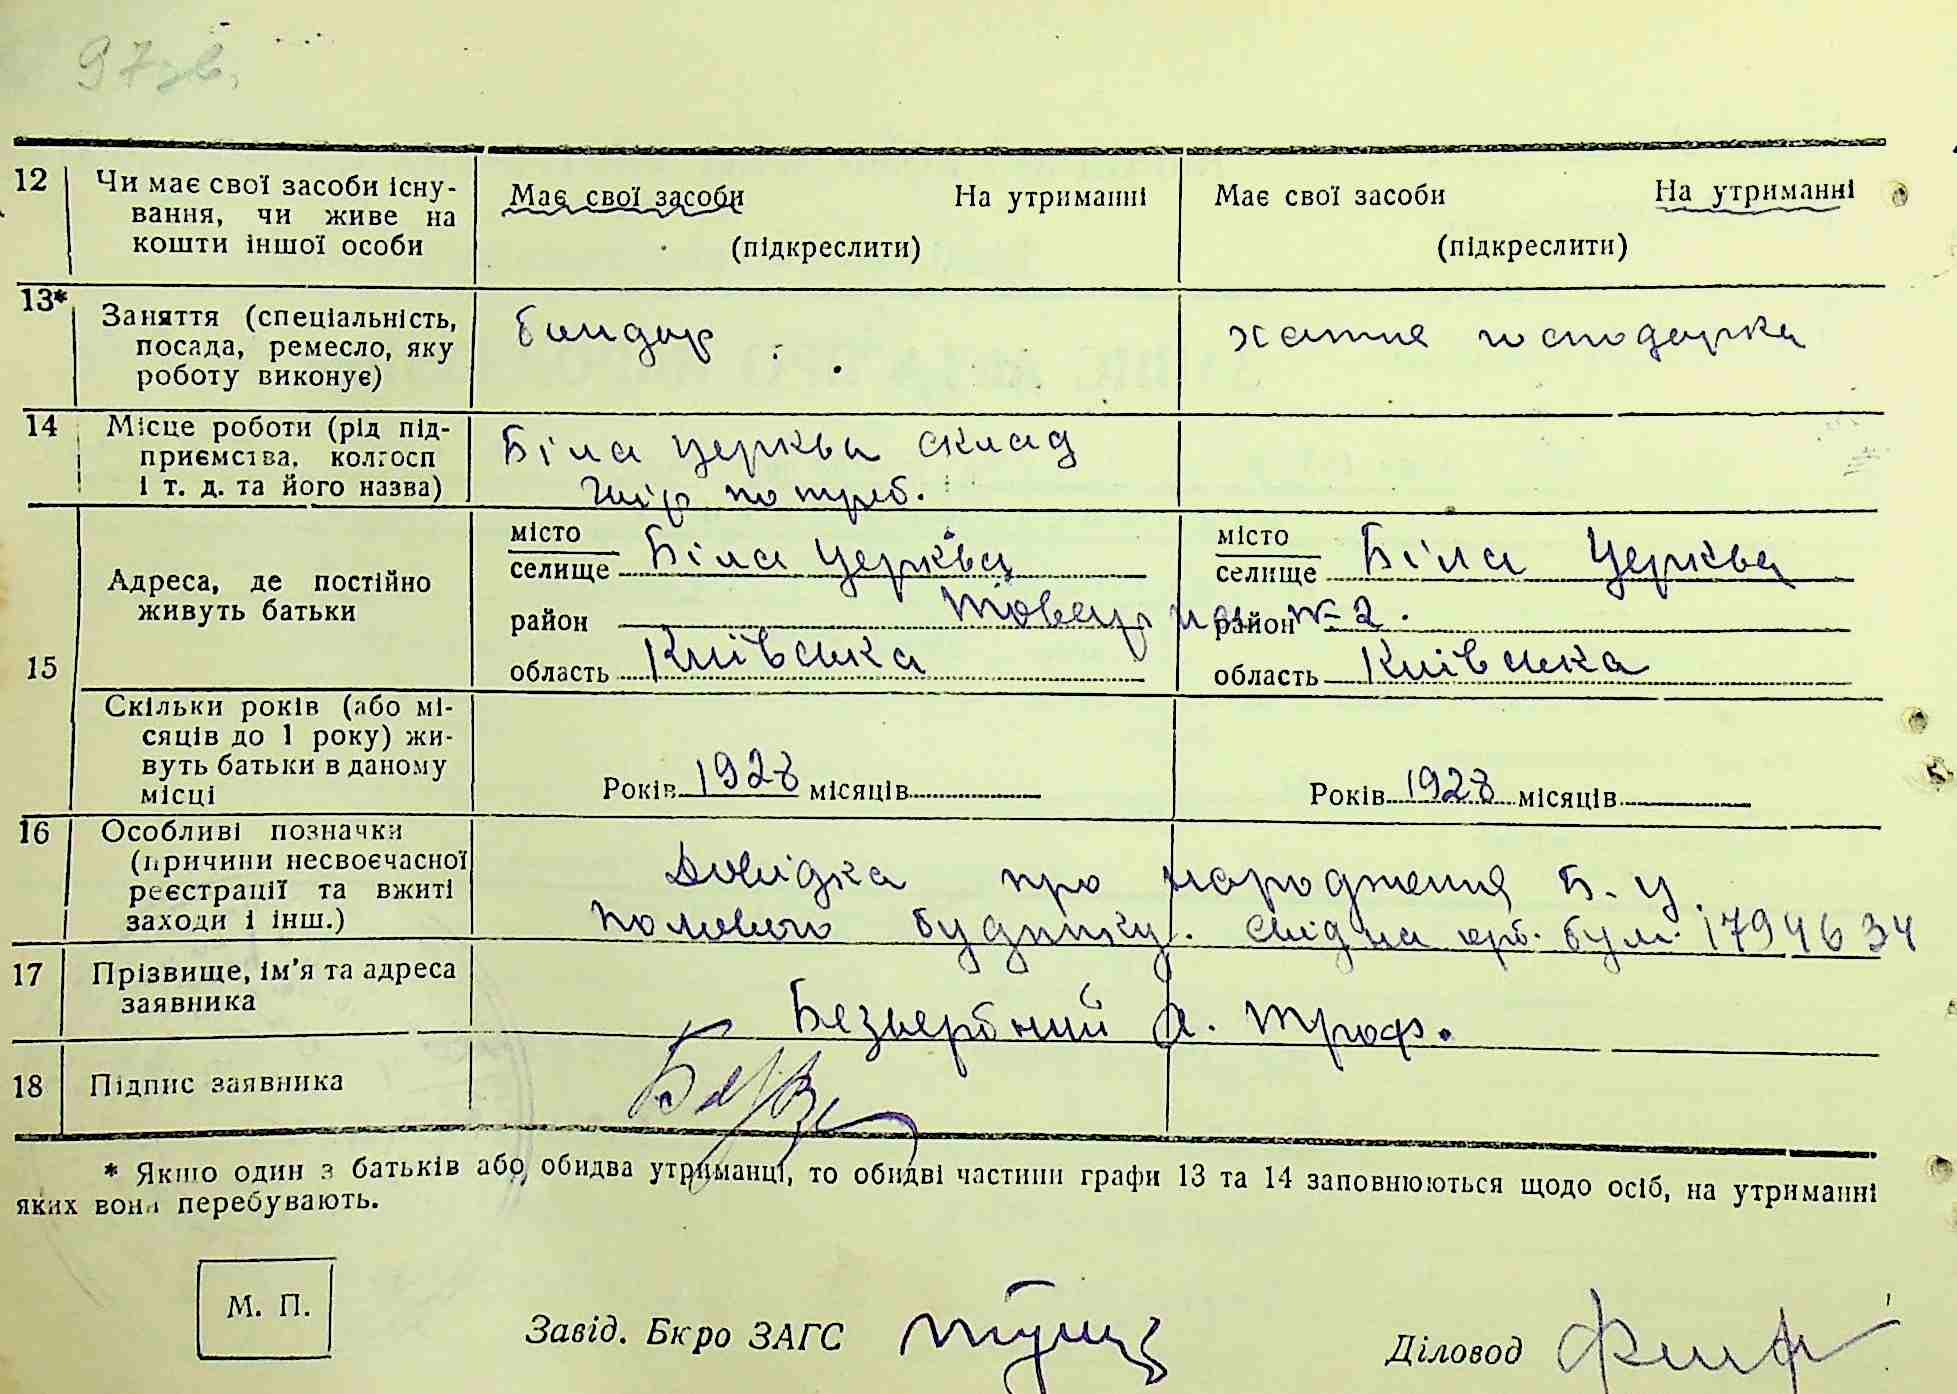 97зв.
12 Чи має свої засоби існу-
вання, чи живе на
кошти іншої особи
Має свої засоби На утриманні
(підкреслити)
Має свої засоби На утриманні
(підкреслити)
13* Заняття (спеціальність,
посада, ремесло, яку
роботу виконує)
бондар
хатня господарка
14 Місце роботи (рід під-
приємства, колгосп
і т. д. та його назва)
Біла церква склад
потреб.
15 Адреса, де постійно
живуть батьки
місто
селище Біла Церква
район
область Київська
місто
селище Біла Церква
район № 2.
область Київська
Скільки років (або мі-
сяців до 1 року) жи-
вуть батьки в даному
місці
Років 1928 місяців
Років 1928 місяців
16 Особливі позначки
(причини несвоєчасної
реєстрації та вжиті
заходи і інш.)
Довідка про народження Б-Ц
полового будинку. 1794634
17 Прізвище, ім'я та адреса
заявника
Безвербний А. Троф.
18 Підпис заявника
* Якшо один з батьків або обидва утриманці, то обидві частини графи 13 та 14 заповнюються щодо осіб, на утриманні
яких вони перебувають.
М. П.
Завід. Бюро ЗАГС
Діловод